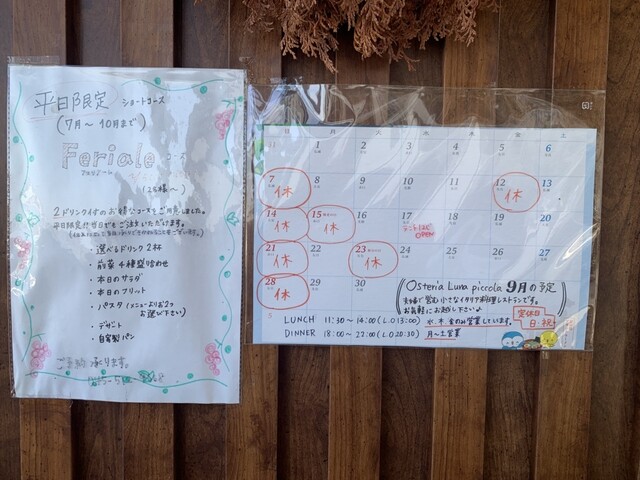 平日限定 ショートコース
(7月～10月まで)
Feriale
(2名様～)
2ドリンク付のお得なコースをご用意しました。
平日限定で当日でもご注文いただけます。
・選べるドリンク2杯
・前菜4種盛り合わせ
・本日のサラダ
・本日のフリット
・パスタ(メニューよりお2つ
お選び下さい)
・デザート
・自家製パン
ご予約承ります。
日 月 火 水 木 金 土
1 2 3 4 5 6
7 休 8 9 10 11 12 休 13
14 休 15 休 16 17 18 19 20
21 休 22 23 休 24 25 26 27
28 休 29 30
Osteria Luna piccola 9月の予定
夫婦で営む小さなイタリア料理レストランです。
お気軽にお越し下さい♪
LUNCH 11:30～14:00(L.O 13:00) 水.木.金のみ営業しています。
DINNER 18:00～22:00(L.O 20:30) 月～土営業
定休日
日.祝